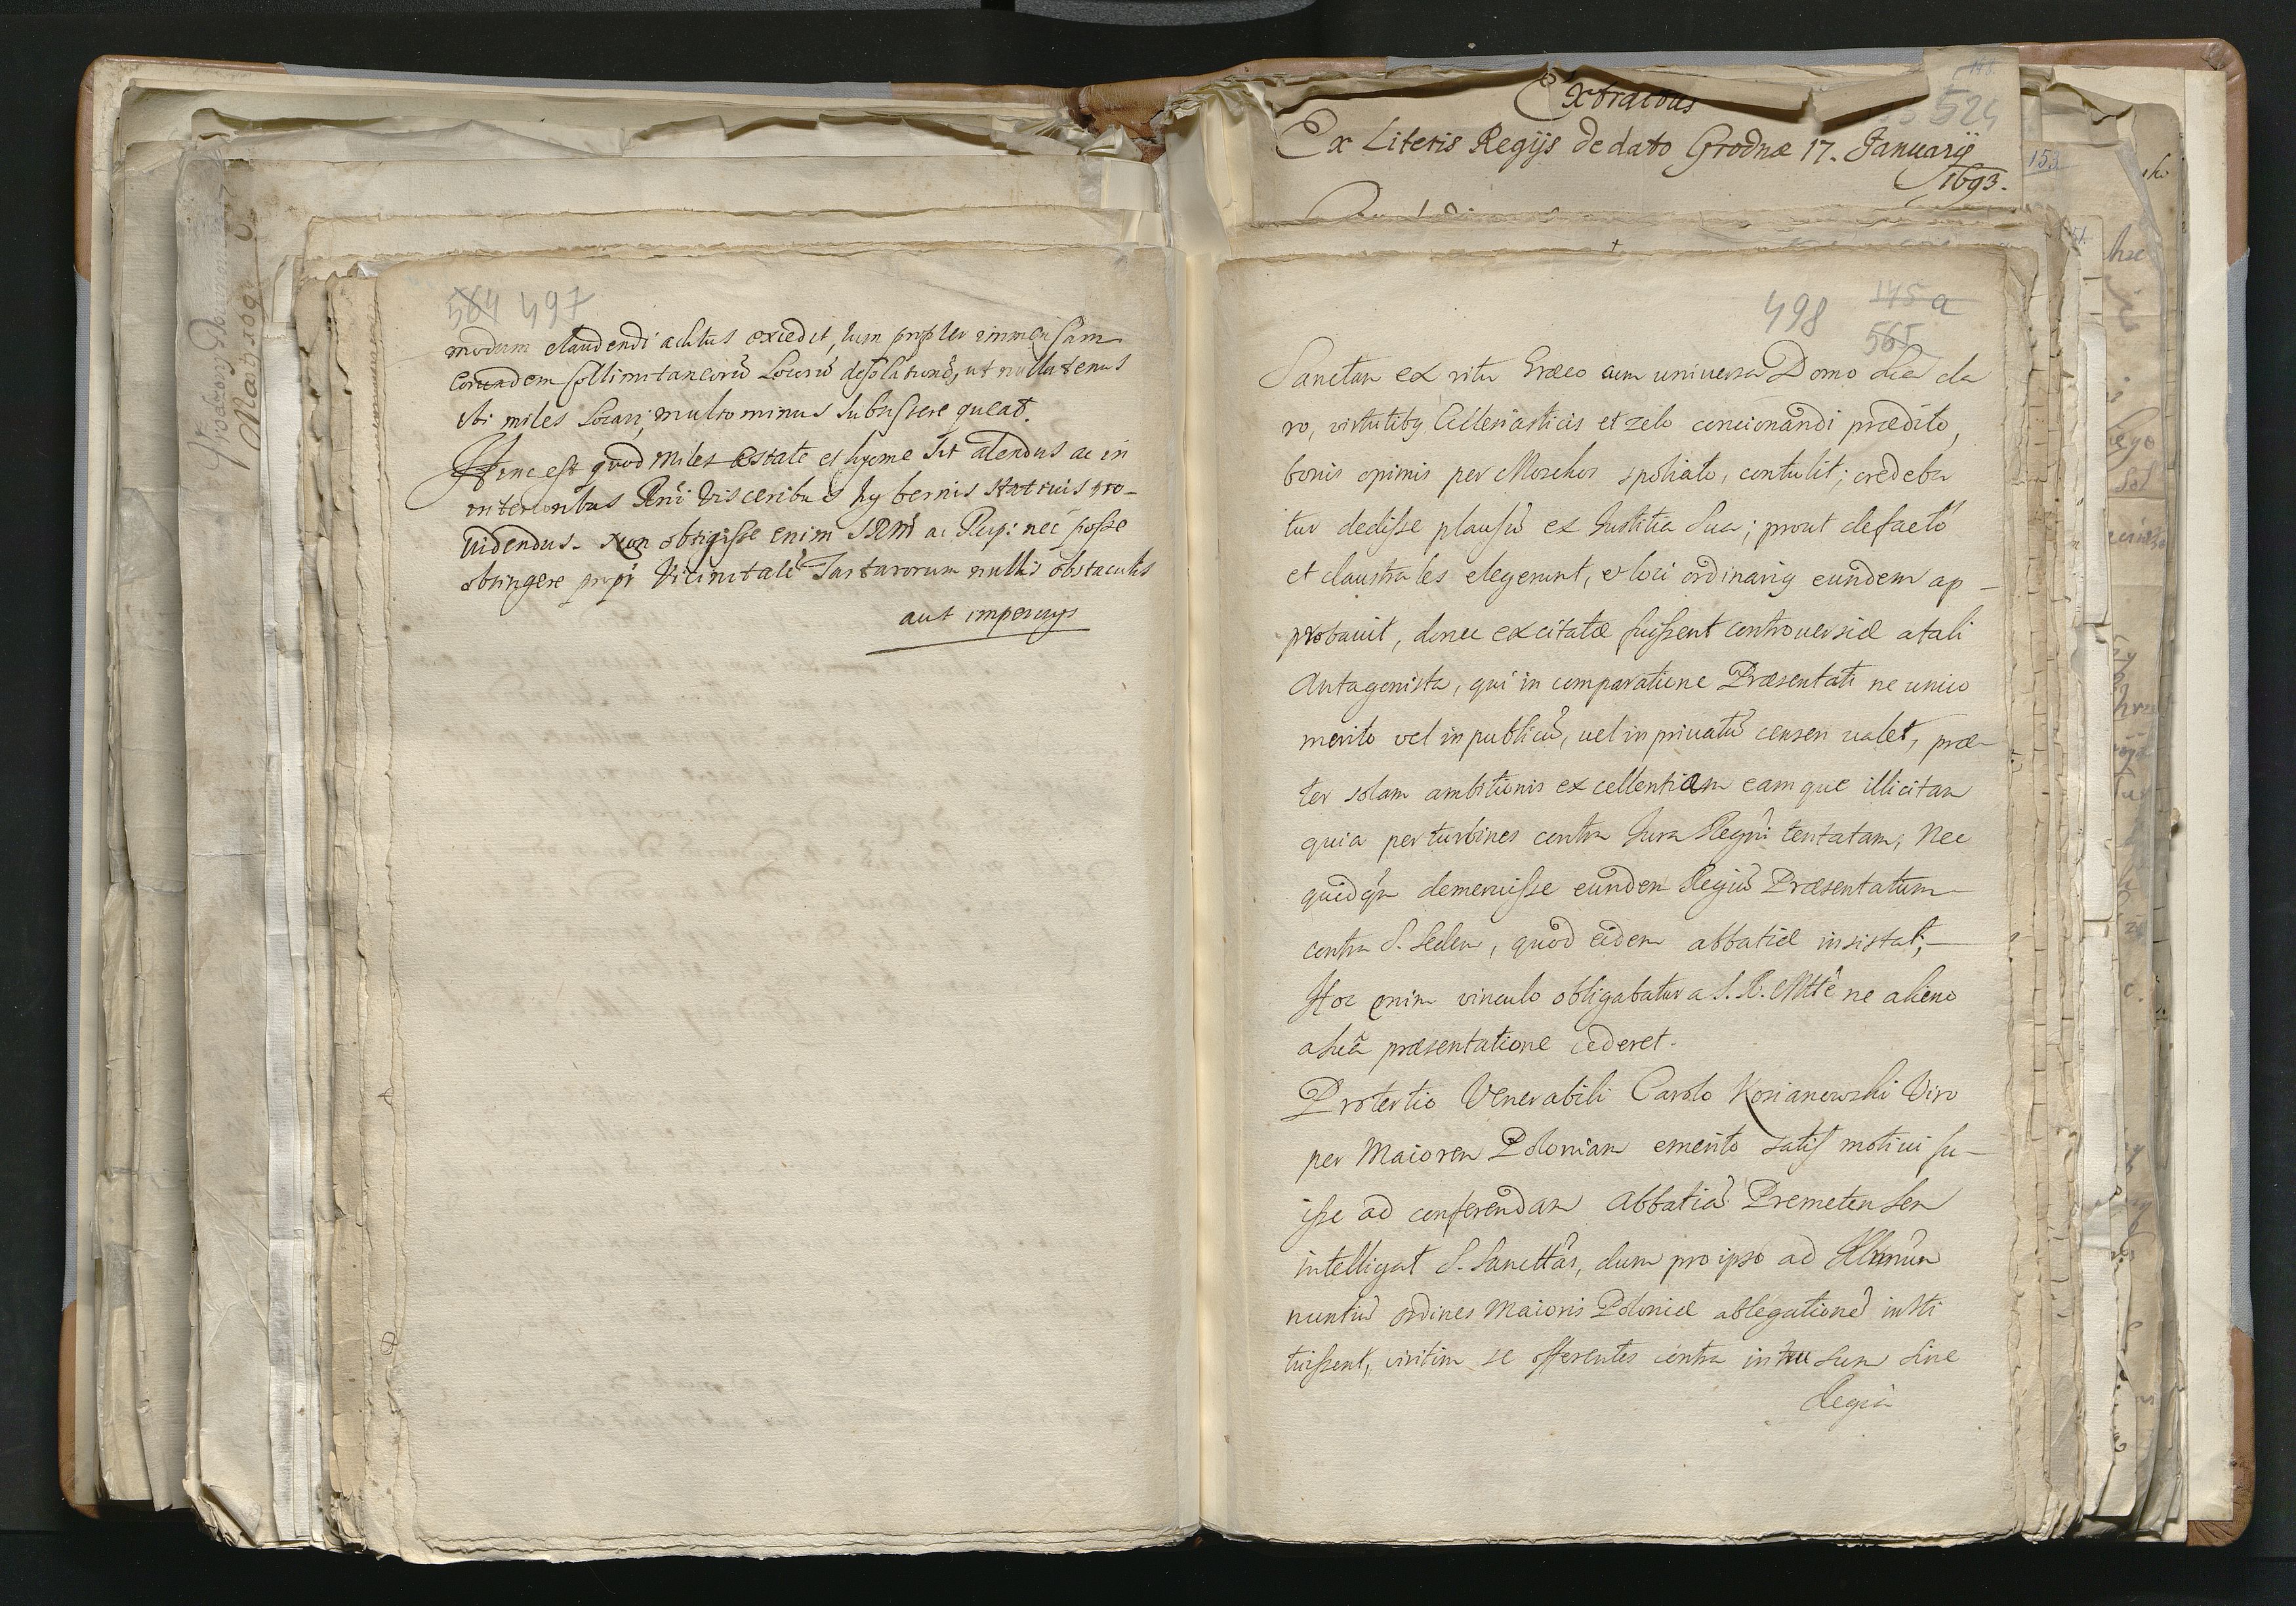 584 497
modum claudendi aditus excedit, tum propter immensam
eorundem collimitaneorũ Locorũ desolationẽ, ut nullatenus
ibi miles locari, multo minus subsistere queat.
Hinc est quod miles æstate et hyeme sit alendus ac in
interioribus Rñi visceribus hybernis stativis pro-
videndus. Non obtigisse enim ac Reip: nec posse
obtingere propr Vicinitatẽ Tartarorum nullis obstaculis
aut impensys
Extractus
Ex Literis Regijs de dato Grodnæ 17. Januarij
1693.
524
153
498 145 a
565
Sanctam ex ritu Græco cum universa Domo sua cla
ro, virtutibq Ecclesiasticis et zelo concionandi prædito,
bonis opimis per Moschos spoliato, contulit; credeba
tur dedisse plausũ ex Justitia sua; prout defacto
et claustrales elegerunt, et loci ordinariq eundem ap-
probauit, donec excitatæ fuissent controuersiæ a tali
Antagonista, qui in comparatione Præsentati ne unico
merito vel in publicũ, uel in priuatũ censeri ualet, præ-
ter solam ambitionis excellentiam eamque illicitam
quia per turbines contra Jura Regni tentatam; Nec
quidqm demeruisse eundem Regiũ Præsentatum
contra S. Sedem, quod eidem abbatiæ insistat;
Hoc enim vinculo obligabatur a S. R. Mtte ne alieno
a suã præsentatione cederet.
Pro tertio Venerabili Carolo Kosianowski Viro
per Maiorem Poloniam emerito satis motiui fu-
isse ad conferendam Abbatiã Premetensem
intelligat S. Sanctitas, dum pro ipso ad Illmum
nuntiũ ordines Maioris Poloniæ ablegationẽ insti
tuissent, viritim se offerentes contra intrusum sine
Regia